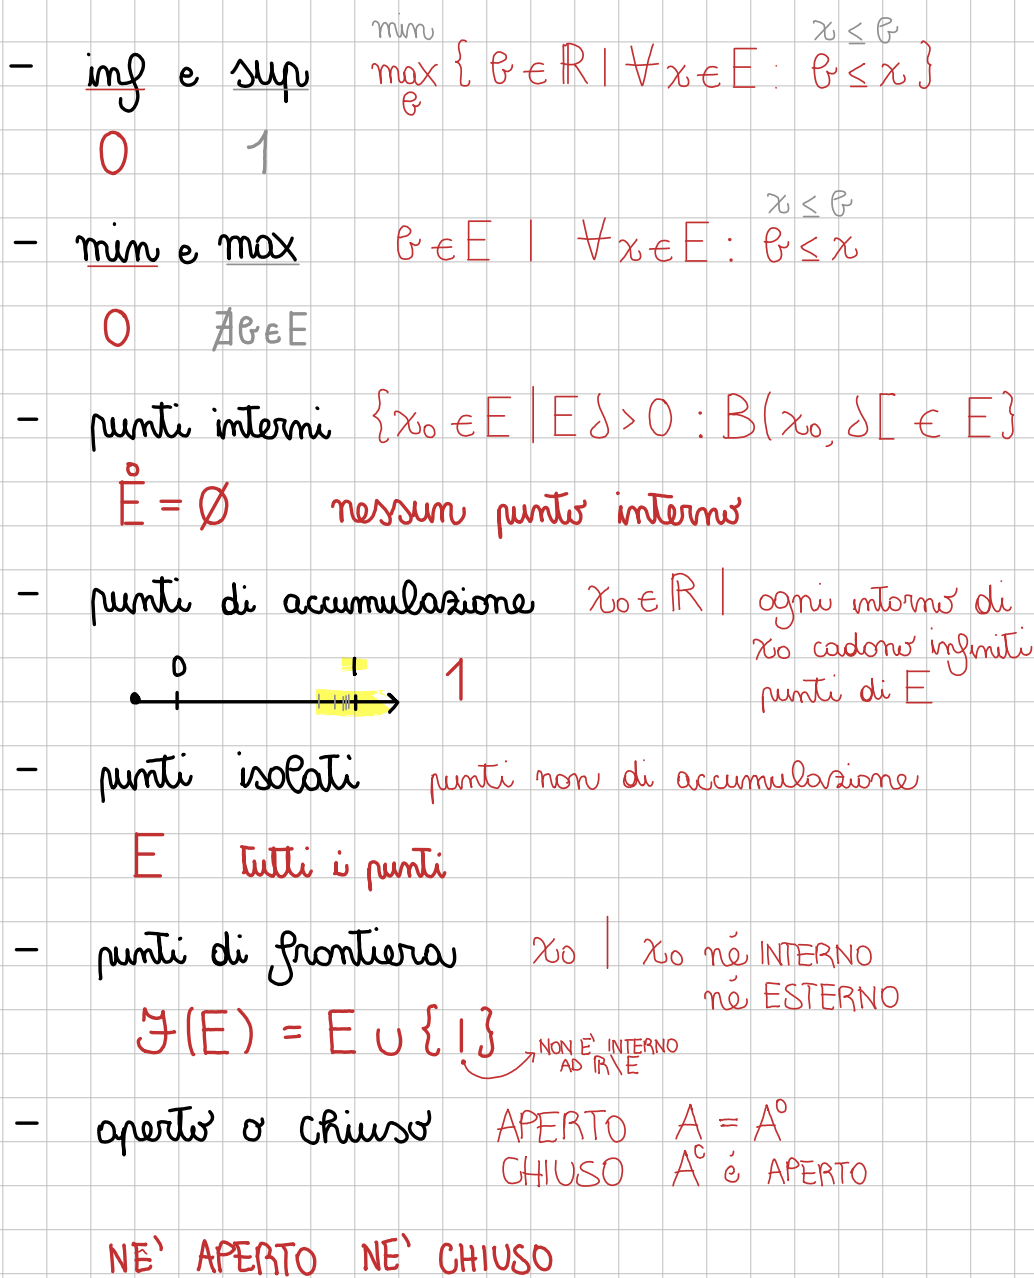 min x ≤ b
- inf e sup max { b ∈ ℝ | ∀x ∈ E : b ≤ x }
b
0 1
x ≤ b
- min e max b ∈ E | ∀x ∈ E : b ≤ x
0 ∄b ∈ E
- punti interni {x₀ ∈ E | E δ > 0 : B(x₀, δ[ ∈ E}
E̊ = ∅ nessun punto interno
- punti di accumulazione x₀ ∈ ℝ | ogni intorno di
x₀ cadono infiniti
punti di E
0 1 1
- punti isolati punti non di accumulazione
E tutti i punti
- punti di frontiera x₀ | x₀ né INTERNO
né ESTERNO
F(E) = E ∪ {1}
NON E' INTERNO
AD ℝ\E
- aperto o chiuso APERTO A = A⁰
CHIUSO Aᶜ é APERTO
NE' APERTO NE' CHIUSO